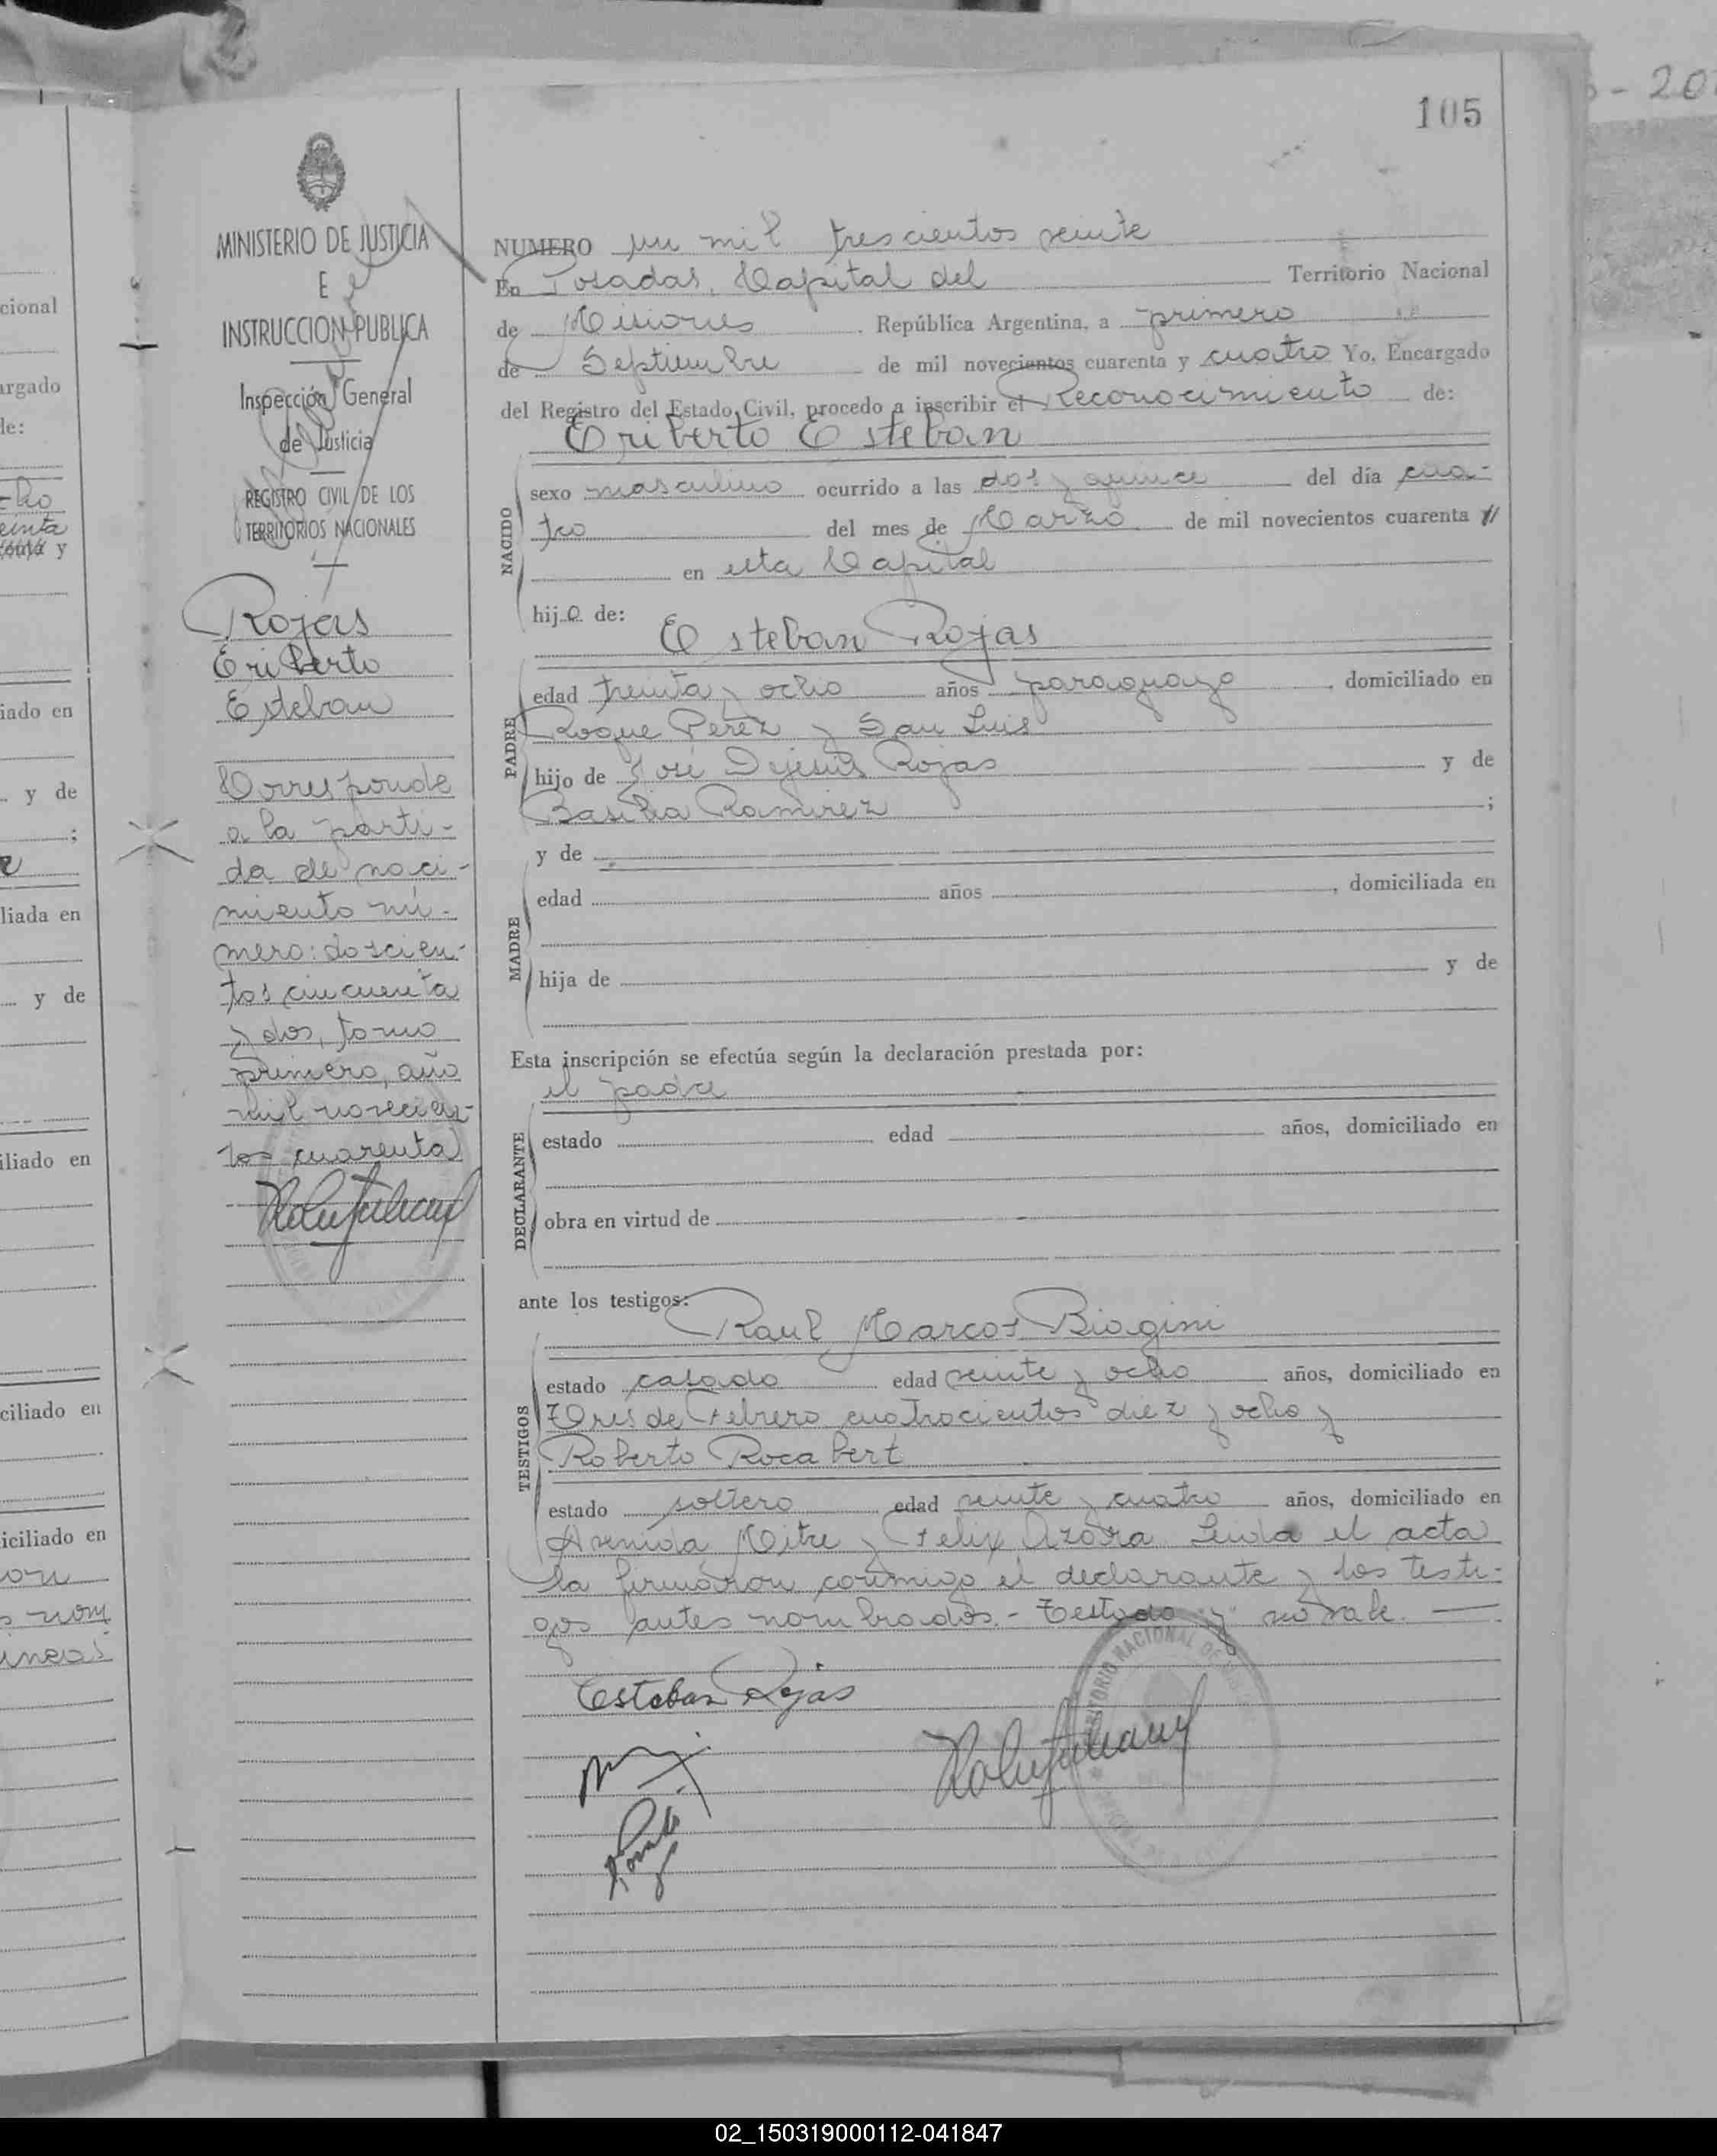 105
- 20
MINISTERIO DE JUSTICIA
E
INSTRUCCION PUBLICA
Inspección General
de Justicia
REGISTRO CIVIL DE LOS
TERRITORIOS NACIONALES
Rojas
Eriberto
Esteban
Corresponde
a la parti-
da de naci-
miento nú-
mero: doscien-
tos cincuenta
y dos, tomo
primero, año
mil novecien-
tos cuarenta
NUMERO un mil trescientos veinte
En Posadas, Capital del Territorio Nacional
de Misiones República Argentina, a primero
de Septiembre de mil novecientos cuarenta y cuatro Yo, Encargado
del Registro del Estado Civil, procedo a inscribir el Reconocimiento de:
Eriberto Esteban
NACIDO
sexo masculino ocurrido a las dos y quince del día cua-
tro del mes de Marzo de mil novecientos cuarenta y
en esta Capital
hijo de:
Esteban Rojas
PADRE
edad treinta y ocho años paraguayo, domiciliado en
Roque Perez y San Luis
hijo de José Dejesús Rojas y de
Basilia Ramirez ;
y de
MADRE
edad años , domiciliada en
hija de y de
Esta inscripción se efectúa según la declaración prestada por:
el padre
DECLARANTE
estado edad años, domiciliado en
obra en virtud de
ante los testigos:
Raul Marcos Biagini
TESTIGOS
estado casado edad veinte y ocho años, domiciliado en
Tres de Febrero cuatrocientos diez y ocho y
Roberto Rocabert
estado soltero edad veinte y cuatro años, domiciliado en
Avenida Mitre y Felix Azara. Leida el acta
la firmaron conmigo el declarante y los testi-
gos antes nombrados.- Testado "y" no vale.
Esteban Rojas
cional
argado
de:
cho
einta
y
iado en
y de
;
liada en
y de
iliado en
ciliado en
iciliado en
on
s nom
ineas
02_150319000112-041847